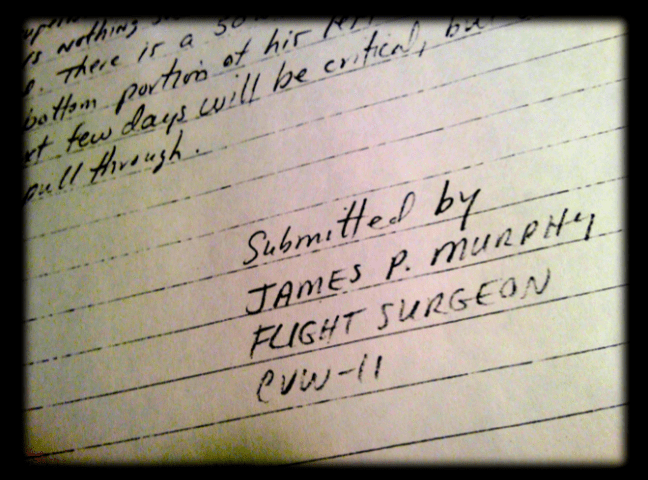 is nothing
There is a 50
bottom portion of his
few days will be critical,
pull through.
Submitted by
JAMES P. MURPHY
FLIGHT SURGEON
CVW-11